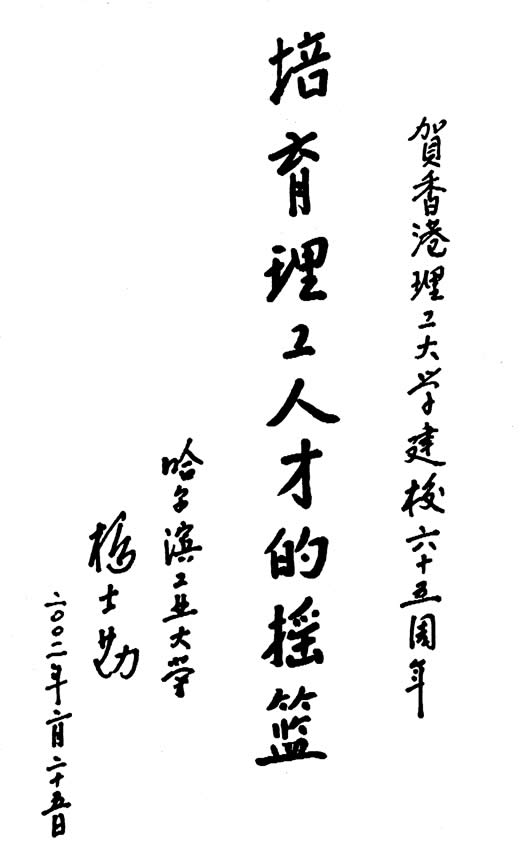 賀香港理工大学建校六十五周年
培育理工人才的摇篮
哈尔滨工业大学
杨士勤
二〇〇二年二月二十五日